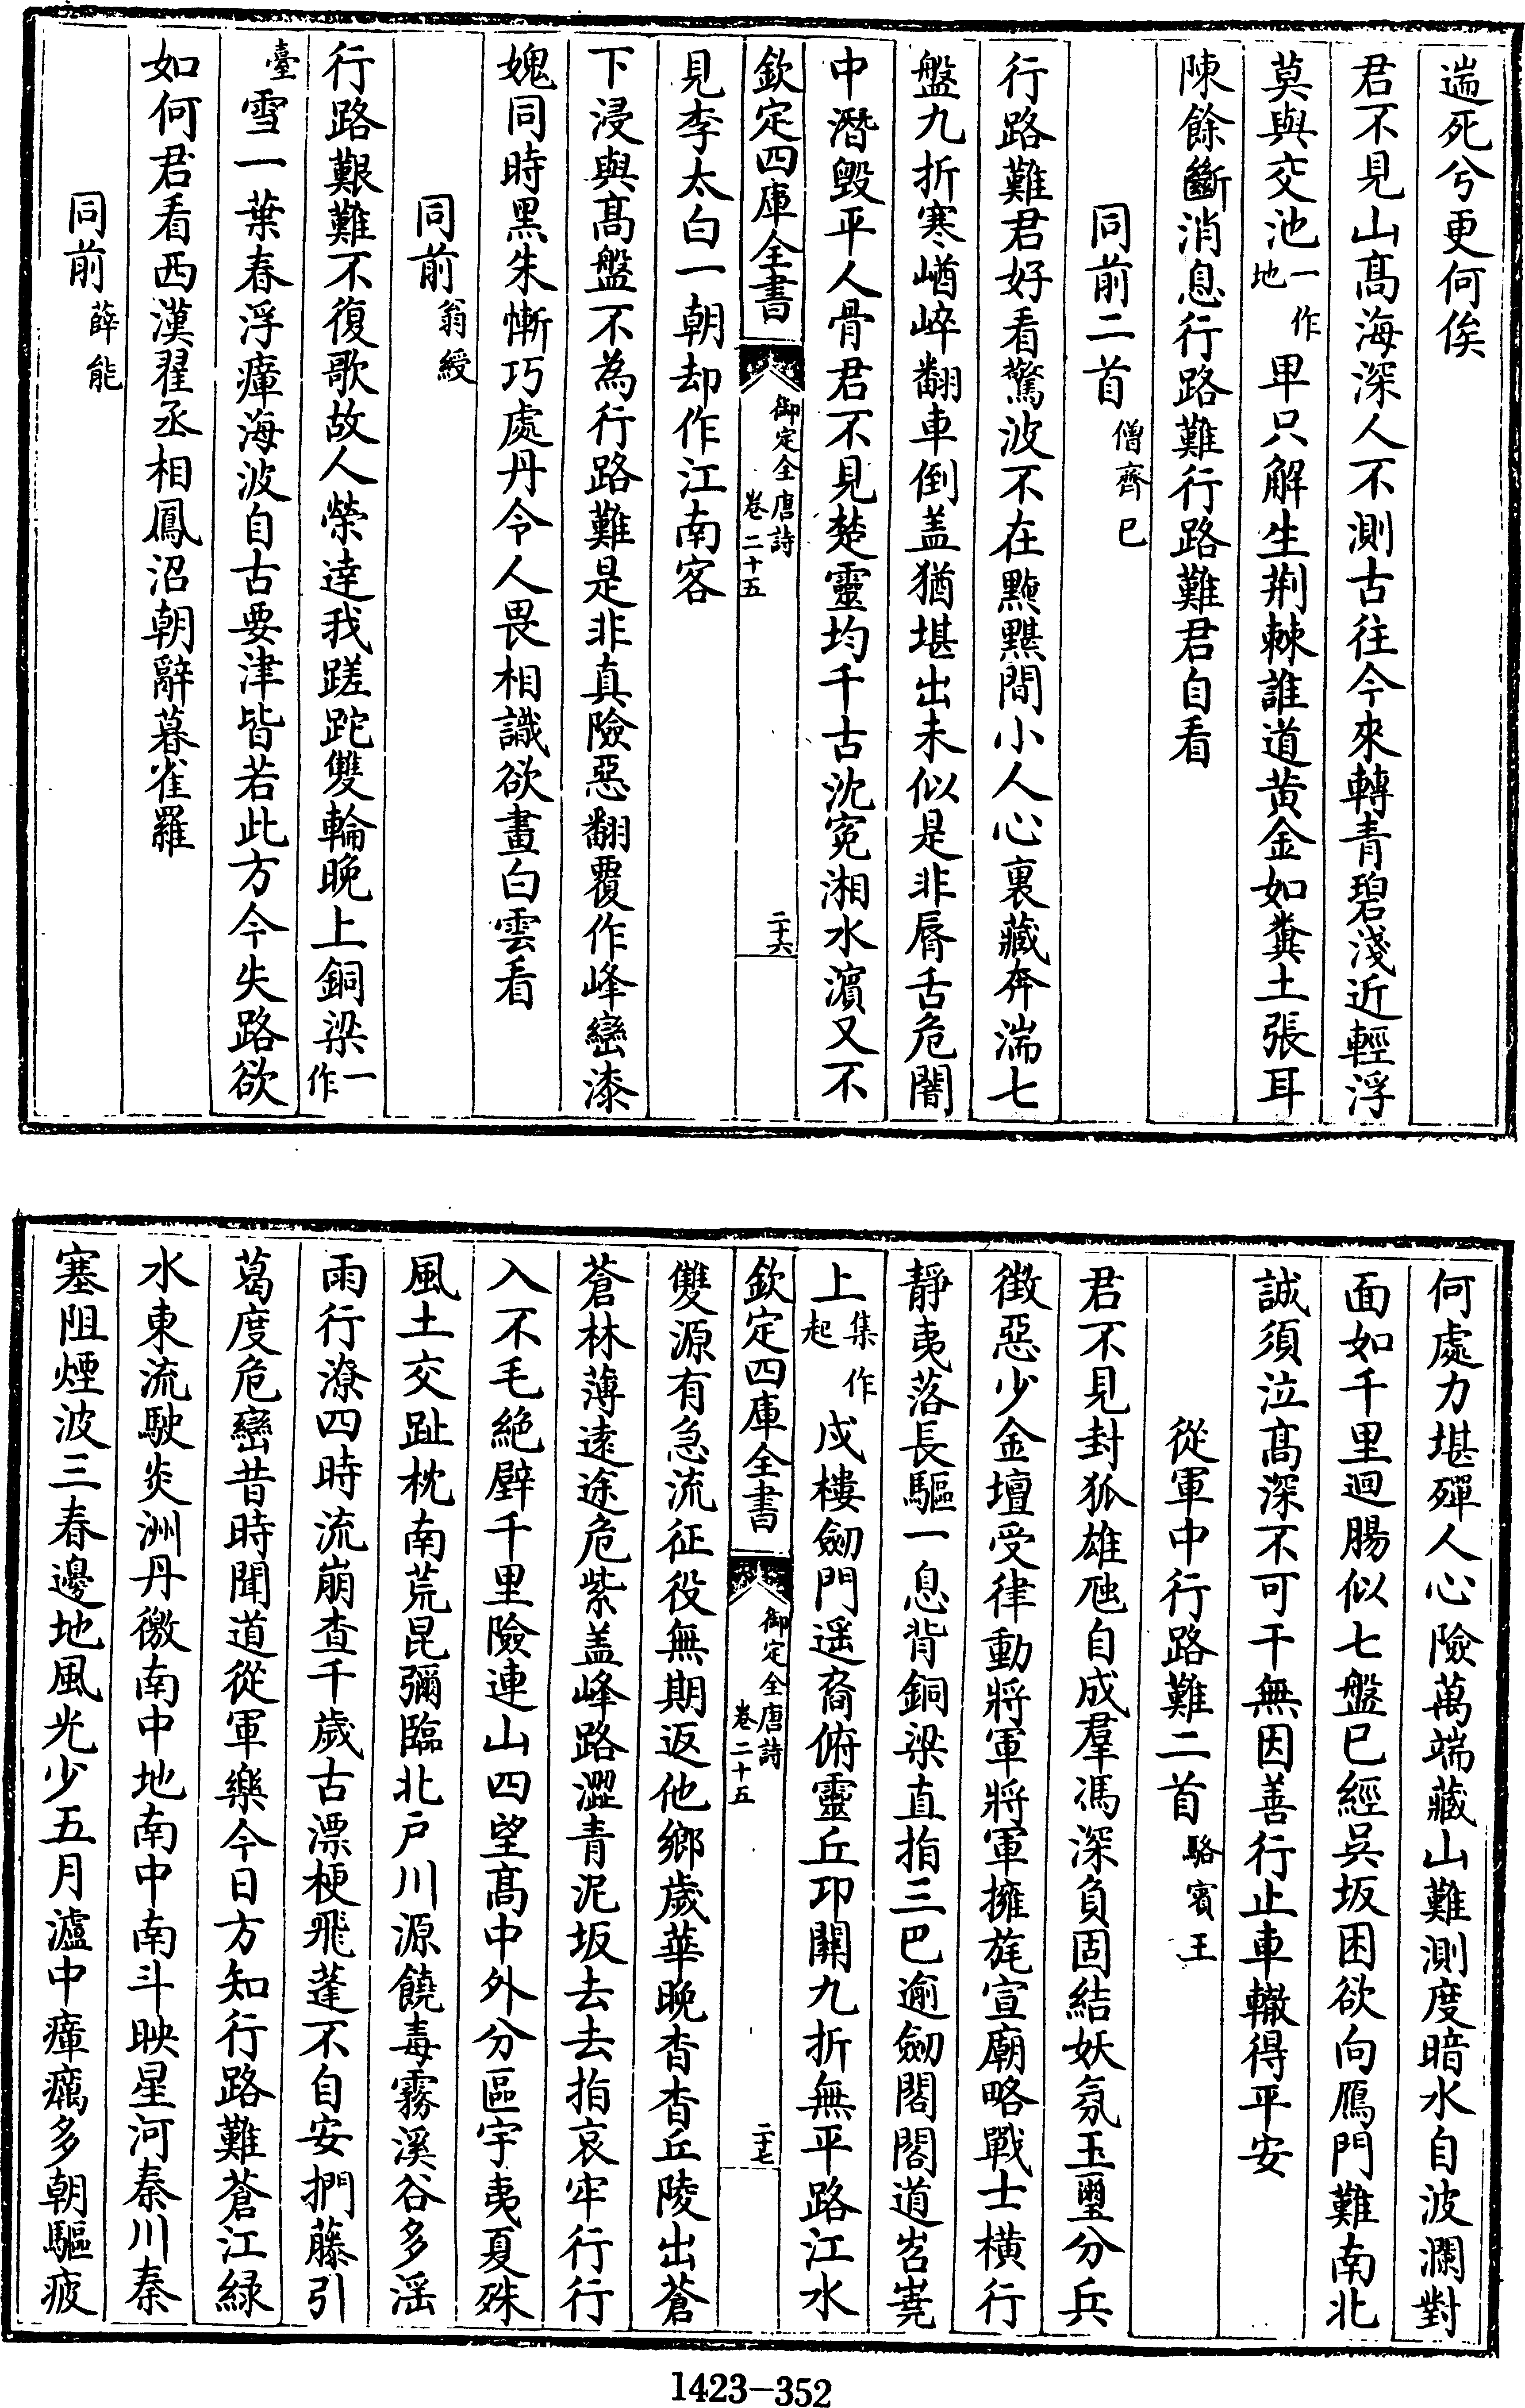 遄死兮更何俟
君不見山高海深人不測古往今來轉青碧淺近輕浮
莫與交池一作地甲只解生荆棘誰道黄金如糞土張耳
陳餘斷消息行路難行路難君自看
同前二首僧齊已
行路難君好看驚波不在黤黮間小人心裏藏奔湍七
盤九折寒崷崪翻車倒盖猶堪出未似是非脣舌危闇
中潛毁平人骨君不見楚靈均千古沈寃湘水濵又不
欽定四庫全書
御定全唐詩
卷二十五
二十六
見李太白一朝却作江南客
下浸與髙盤不為行路難是非真險惡翻覆作峰巒漆
媿同時黑朱慚巧處丹令人畏相識欲畫白雲看
同前翁綬
行路艱難不復歌故人榮達我蹉跎雙輪晚上銅梁一作
臺雪一葉春浮瘴海波自古要津皆若此方今失路欲
如何君看西漢翟丞相鳳沼朝辭暮雀羅
同前薛能
何處力堪殫人心險萬端藏山難測度暗水自波瀾對
面如千里迴腸似七盤已經吳坂困欲向鴈門難南北
誠須泣髙深不可干無因善行止車轍得平安
從軍中行路難二首駱賓王
君不見封狐雄虺自成羣馮深負固結妖氛玉璽分兵
徴惡少金壇受律動將軍將軍擁旄宣廟略戰士横行
静夷落長驅一息背銅梁直指三巴逾劒閣閣道岧嶤
上集作起戍樓劒門遥裔俯靈丘卭關九折無平路江水
欽定四庫全書
御定全唐詩
卷二十五
二十七
雙源有急流征役無期返他鄉歲華晚杳杳丘陵出蒼
蒼林薄逺途危紫盖峰路澀青泥坂去去指哀牢行行
入不毛絶壁千里險連山四望髙中外分區宇夷夏殊
風土交趾枕南荒昆彌臨北戶川源饒毒霧溪谷多滛
雨行潦四時流崩查千歲古漂梗飛蓬不自安捫藤引
葛度危巒昔時聞道從軍樂今日方知行路難蒼江緑
水東流駛炎洲丹徼南中地南中南斗映星河秦川秦
塞阻煙波三春邊地風光少五月瀘中瘴癘多朝驅疲
1423-352